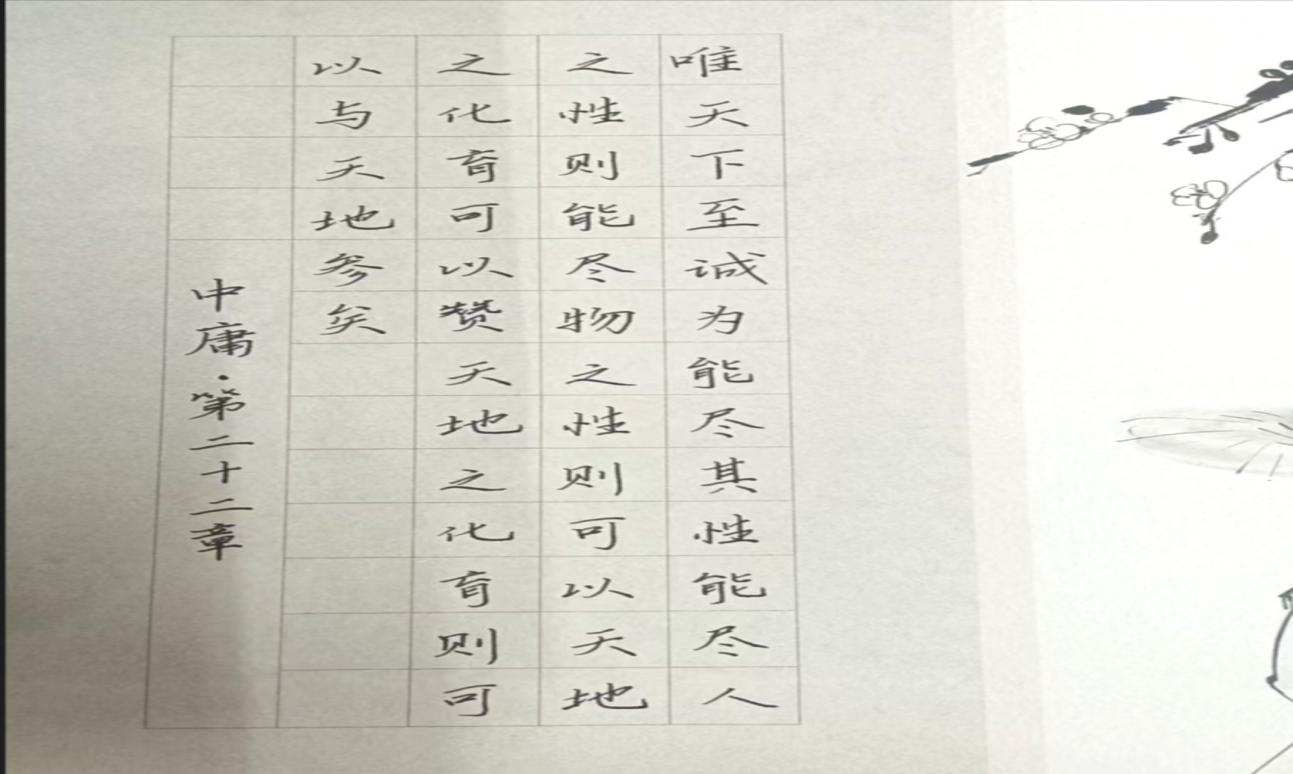 唯天下至诚为能尽其性能尽人
之性则能尽物之性则可以天地
之化育可以赞天地之化育则可
以与天地参矣
中庸·第二十二章